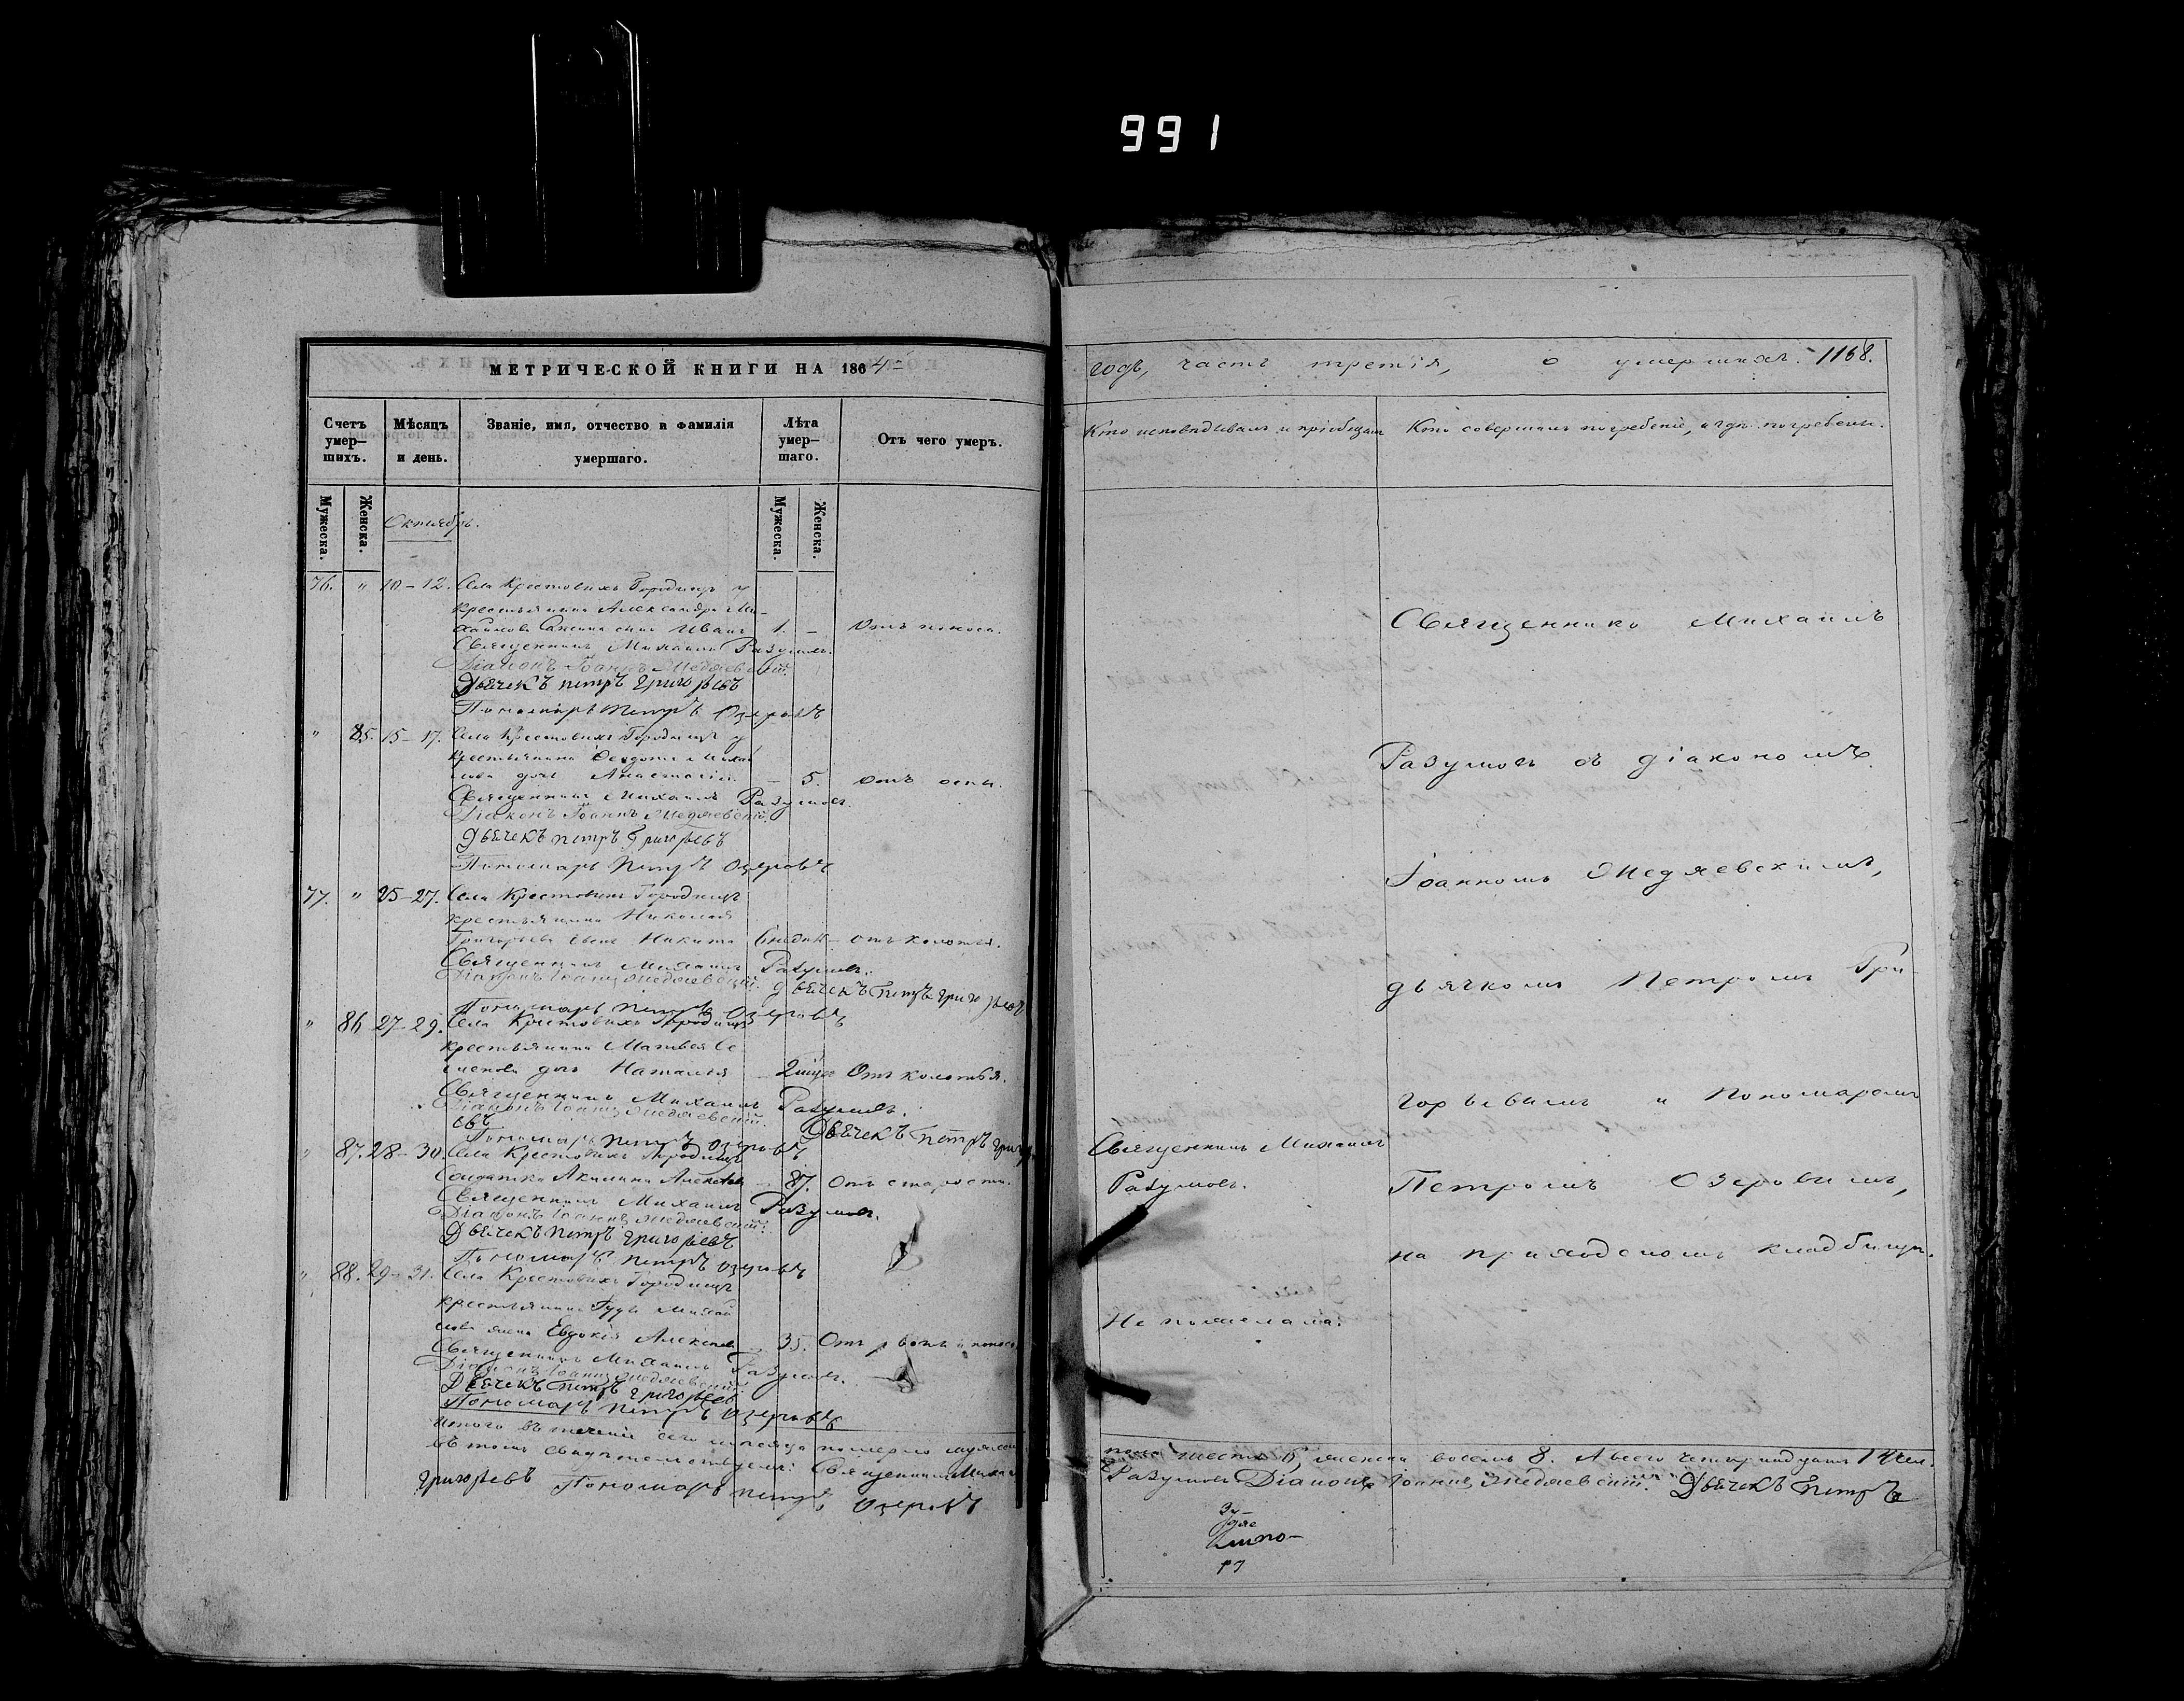 991
МЕТРИЧЕСКОЙ КНИГИ НА 1864
Счетъ умер-шихъ.
Мѣсяцъ и день.
Званіе, имя, отчество и фамилія умершаго.
Лѣта умер-шаго.
Отъ чего умеръ.
Мужеска.
Женска.
Мужеска.
Женска.
Октябрь.
76. " 10-12. Села Крестовыхъ Городищъ у
крестьянина Александра Ми-
хайлова сынъ Иванъ 1. - Отъ поноса.
Священникъ Михаилъ Разумовъ.
Діаконъ Іоаннъ Медяевскій.
Дьячекъ петръ григорьевъ
Пономарь Петръ Озеровъ
" 85. 15-17. Села Крестовыхъ Городищъ у
крестьянина Михай
лова дочь Анастасія - 5. отъ оспы.
Священникъ Михаилъ Разумовъ.
Діаконъ Іоаннъ Медяевскій.
дьячекъ петръ Григорьевъ
Пономарь Петръ Озеровъ
77. " 25-27. Села Крестовыхъ Городищъ
крестьянина Николая
Григорьева сынъ Никита отъ колотья.
Священникъ Михаилъ Разумовъ.
Діаконъ Іоаннъ Медяевскій. дьячекъ Петръ григорьевъ
Пономарь петръ Озеровъ
" 86 27-29. Села Крестовыхъ Городищъ
крестьянина Матвея Се
менова дочь Наталья - Отъ колотья.
Священникъ Михаилъ Разумовъ.
Діаконъ Іоаннъ Медяевскій. Дьячекъ петръ григорь
евъ
Пономарь петръ Озеровъ
" 87. 28-30. Села Крестовыхъ Городищъ
Солдатка Акилина - 87. Отъ старости.
Священникъ Михаилъ Разумовъ.
Діаконъ Іоаннъ Медяевскій.
Дьячекъ петръ григорьевъ
Пономарь петръ Озеровъ
" 88. 29-31. Села Крестовыхъ Городищъ
крестьянина Михай
лова жена Евдокія - 35. Отъ рвоты и поноса
Священникъ Михаилъ Разумовъ.
Діаконъ Іоаннъ Медяевскій.
Дьячекъ петръ григорьевъ
Пономарь петръ Озеровъ
Итого въ теченіи сего мѣсяца померло мужеска
въ томъ свидѣтельствуемъ: Священникъ Михаилъ
григорьевъ Пономарь петръ Озеровъ
годъ, часть третія, о умершихъ. 1168.
Кто исповѣдывалъ и пріобщалъ
Кто совершалъ погребеніе, и гдѣ погребены.
Священникъ Михаилъ
Разумовъ съ діакономъ
Іоанномъ Медяевскимъ,
дьячкомъ Петромъ Гри-
горьевымъ и Пономаремъ
Священникъ Михаилъ
Разумовъ.
Петромъ Озеровымъ,
на приходскомъ кладбищѣ.
Не пожелала.
пола шесть 6, женска восемь 8. А всего четырнадцать 14 чел.
Разумовъ Діаконъ Іоаннъ Медяевскій. Дьячекъ Петръ